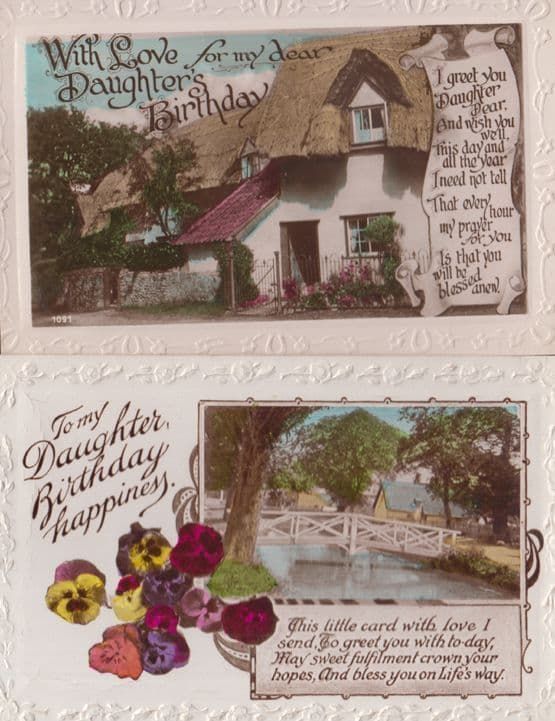 With Love for my dear
Daughter's
Birthday
I greet you
Daughter
Dear,
And wish you
well,
This day and
all the year
I need not tell
That every hour
my prayer
for you
Is that you
will be
blessed
anew.
1091
To my
Daughter,
Birthday
happiness.
This little card with love I
send, To greet you with to-day,
May sweet fulfilment crown your
hopes, And bless you on Life's way.